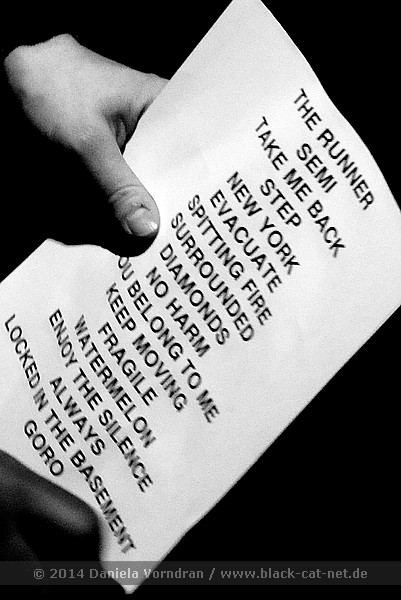 THE RUNNER
SEMI
TAKE ME BACK
STEP
NEW YORK
EVACUATE
SPITTING FIRE
SURROUNDED
DIAMONDS
NO HARM
OU BELONG TO ME
KEEP MOVING
FRAGILE
WATERMELON
ENJOY THE SILENCE
ALWAYS
LOCKED IN THE BASEMENT
GORO
© 2014 Daniela Vorndran / www.black-cat-net.de